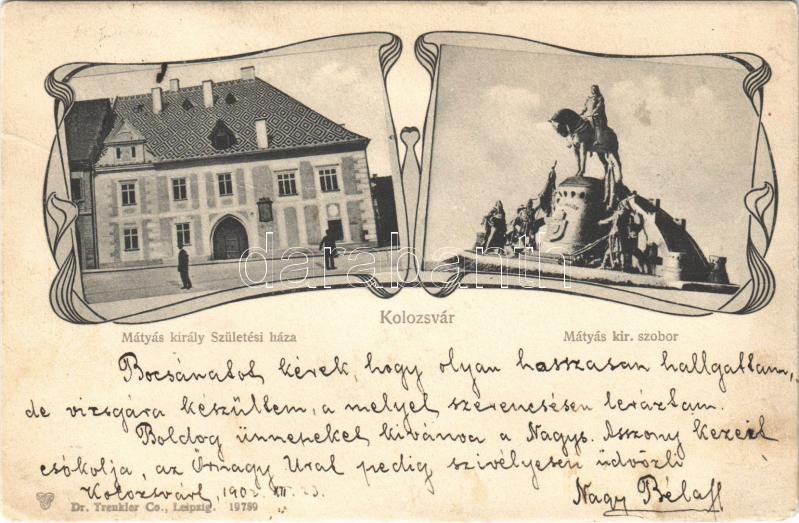 Kolozsvár
Mátyás király Születési háza
Mátyás kir. szobor
darabanth
Bocsánatot kérek, hogy olyan hosszasan hallgattam,
de vizsgára készültem, a melyet szerencsésen leráztam.
Boldog ünnepeket kívánva a Nagys. Asszony kezeit
csókolja, az Őrnagy Urat pedig szívélyesen üdvözli
Kolozsvárt, 1902. XII. 23.
Nagy Béla
Dr. Trenkler Co., Leipzig. 19789